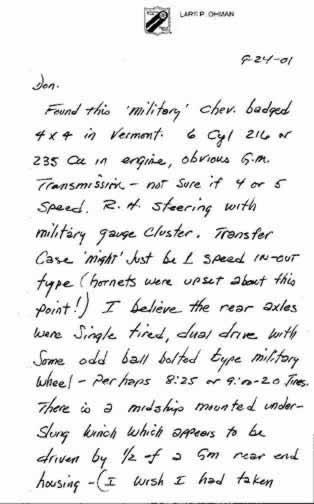 LARS P. OHMAN
9-24-01
Don.
Found this 'military' Chev. badged
4x4 in Vermont. 6 Cyl 216 or
235 Cu in engine, obvious G.M.
Transmission - not sure if 4 or 5
Speed. R.H. Steering with
military gauge cluster. Transfer
Case 'might' Just be 1 speed IN-OUT
type (hornets were upset about this
point!) I believe the rear axles
were Single tired, dual drive with
Some odd ball bolted type military
Wheel - Perhaps 8:25 or 9:00-20 Tires.
There is a midship mounted under-
Slung winch which appears to be
driven by 1/2 of a Gm rear end
housing - (I wish I had taken